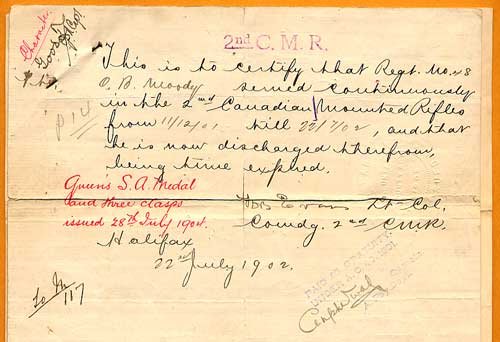 2nd C. M. R.
Character
Good
This is to certify that Regt. No. 48
Pte. O. B. Moody served continuously
in the 2nd Canadian Mounted Rifles
from 11/12/01. till 22/7/02, and that
he is now discharged therefrom,
being time expired.
Queen's S. A. Medal
and three clasps
issued 28th July 1904.
Evans Lt-Col.
Comdg. 2nd CMR.
Halifax
22nd July 1902.
117